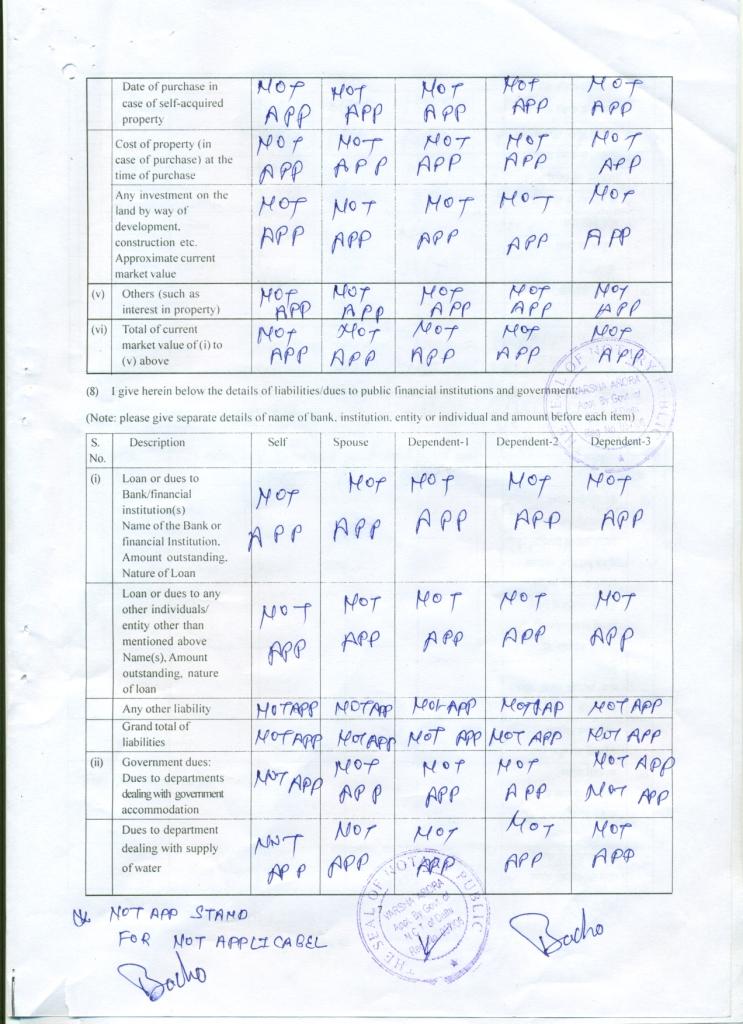 Date of purchase in NOT NOT NOT NOT NOT
case of self-acquired APP APP APP APP APP
property
Cost of property (in NOT NOT NOT NOT NOT
case of purchase) at the APP APP APP APP APP
time of purchase
Any investment on the NOT NOT NOT NOT NOT
land by way of
development, APP APP APP APP APP
construction etc.
Approximate current
market value
(v) Others (such as NOT NOT NOT NOT NOT
interest in property) APP APP APP APP APP
(vi) Total of current NOT NOT NOT NOT NOT
market value of (i) to APP APP APP APP APP
(v) above
(8) I give herein below the details of liabilities/dues to public financial institutions and government:
(Note: please give separate details of name of bank, institution, entity or individual and amount before each item)
S. Description Self Spouse Dependent-1 Dependent-2 Dependent-3
No.
(i) Loan or dues to NOT NOT NOT NOT NOT
Bank/financial
institution(s)
Name of the Bank or APP APP APP APP APP
financial Institution,
Amount outstanding,
Nature of Loan
Loan or dues to any NOT NOT NOT NOT NOT
other individuals/
entity other than
mentioned above APP APP APP APP APP
Name(s), Amount
outstanding, nature
of loan
Any other liability NOT APP NOT APP NOT APP NOT AP NOT APP
Grand total of NOT APP NOT APP NOT APP NOT APP NOT APP
liabilities
(ii) Government dues: NOT APP NOT NOT NOT NOT APP
Dues to departments APP APP APP NOT APP
dealing with government
accommodation
Dues to department NOT NOT NOT NOT NOT
dealing with supply APP APP APP APP APP
of water
NOT APP STAND
FOR NOT APPLICABEL
THE SEAL OF NOTARY PUBLIC
VARSHA ARORA
Appt. By Govt. of
N.C.T. of Delhi
THE SEAL OF NOTARY PUBLIC
VARSHA ARORA
Appt. By Govt. of